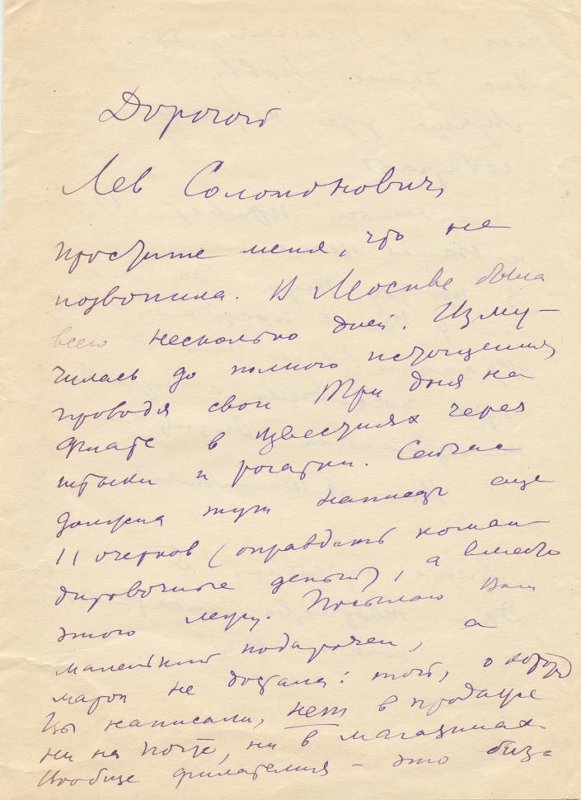 Дорогой
Лев Соломонович,
простите меня, что не
позвонила. В Москве была
всего несколько дней. Изму-
чилась до полного истощения
проводя свои три дня на
в Известиях через
штыки и рогатки. Сейчас
должна тут написать еще
11 очерков (оправдать коман-
дировочные деньги), а вместо
этого лежу. Посылаю Вам
маленький подарочек, а
марок не достала: той, о которой
Вы написали, нет в продаже
ни на почте, ни в магазинах.
Вообще филателия – это биз-